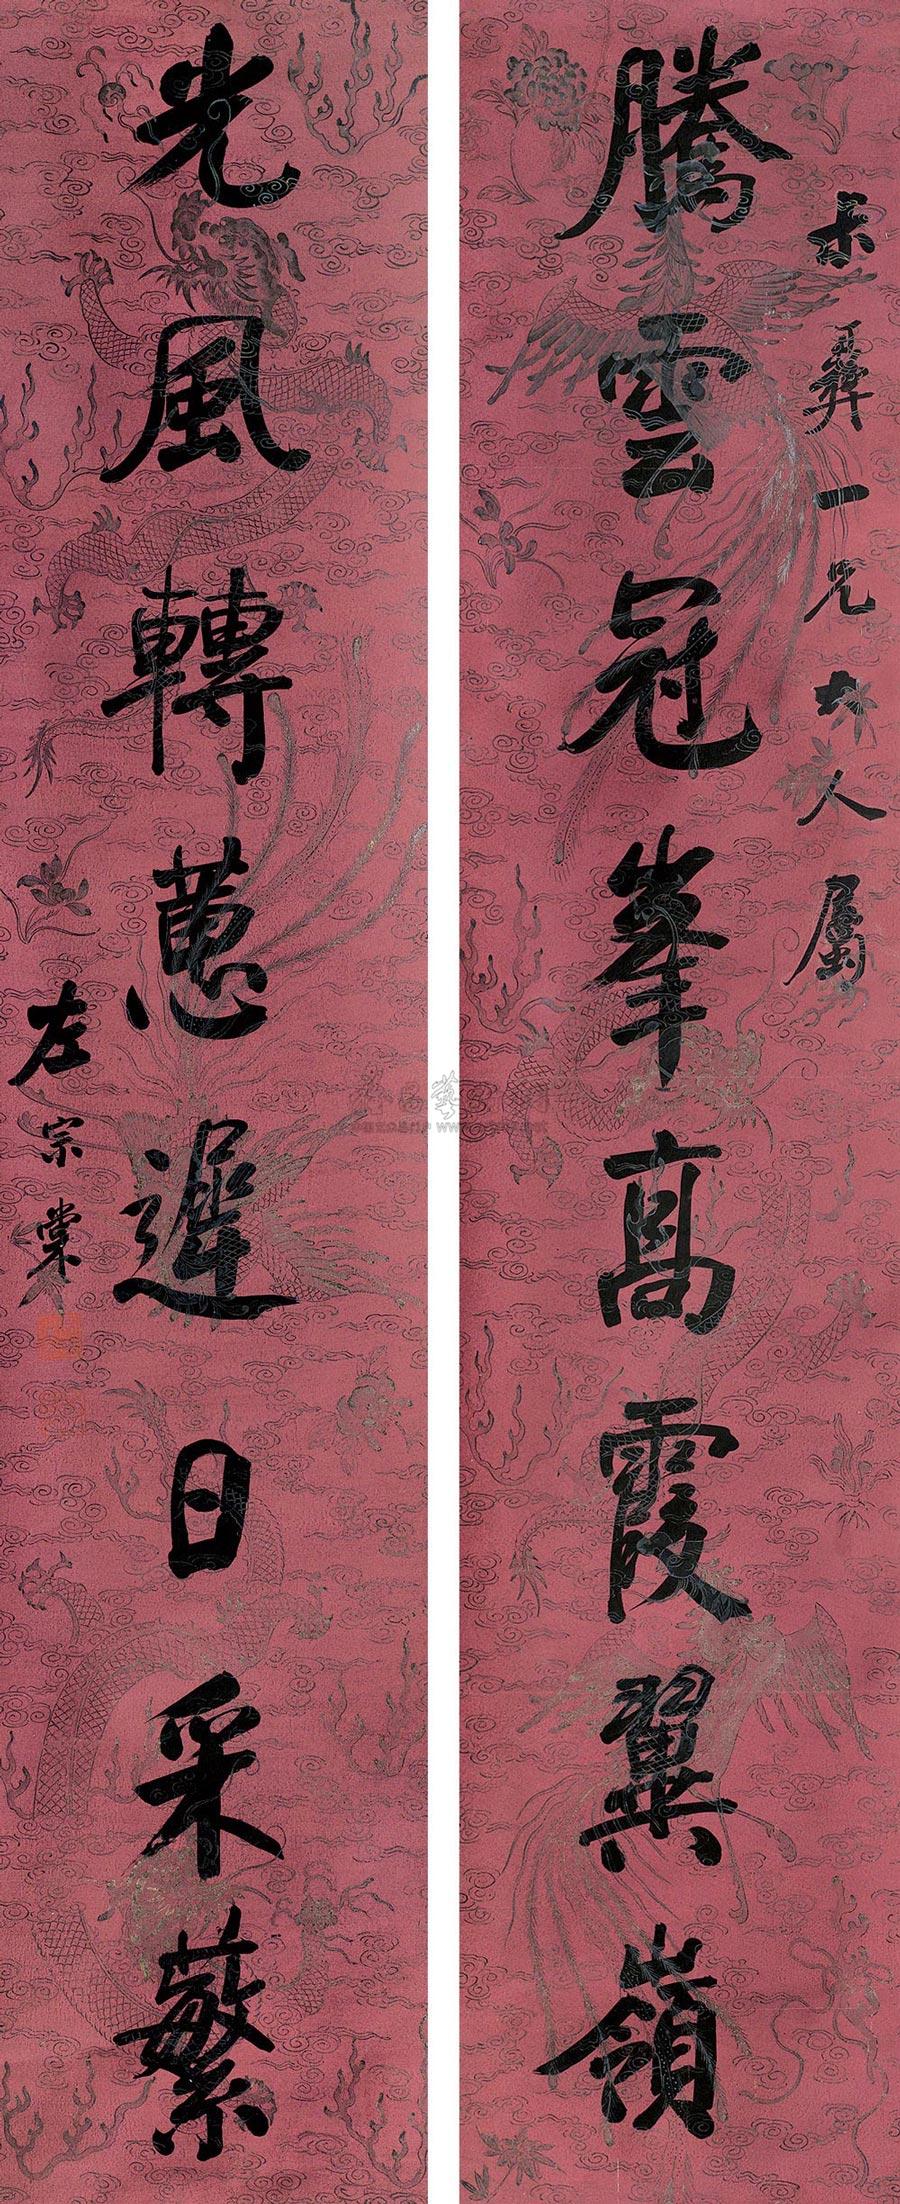 彝一兄大人屬
騰雲冠峯高霞翼嶺
光風轉蕙遲日采蘩
左宗棠